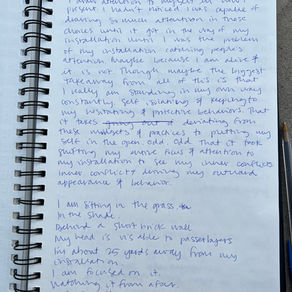 present I have. Not on I was capable of
drawing so much attention in those
until I got in the way of my
installation until I was the problem
of my installation catching people's
attention. Maybe because I am alive &
it is not. Though maybe the biggest
takeaway from all of this is that
I really am standing in my own way
constantly self isolating & keeping to
my hesitating & protective behaviors. That
it takes deviating from
these & practices to putting my
self in the open. Odd. Odd that it took
putting my focus & attention to
my installation to see my inner conflicts.
Inner conflicts driving my outward
appearance & behavior.
I am sitting in the grass
In the shade.
Behind a short brick wall
My head is visable to passerbyers
I'm about 25 yards away from my
installation.
I am focused on it.
Watching it from afar.